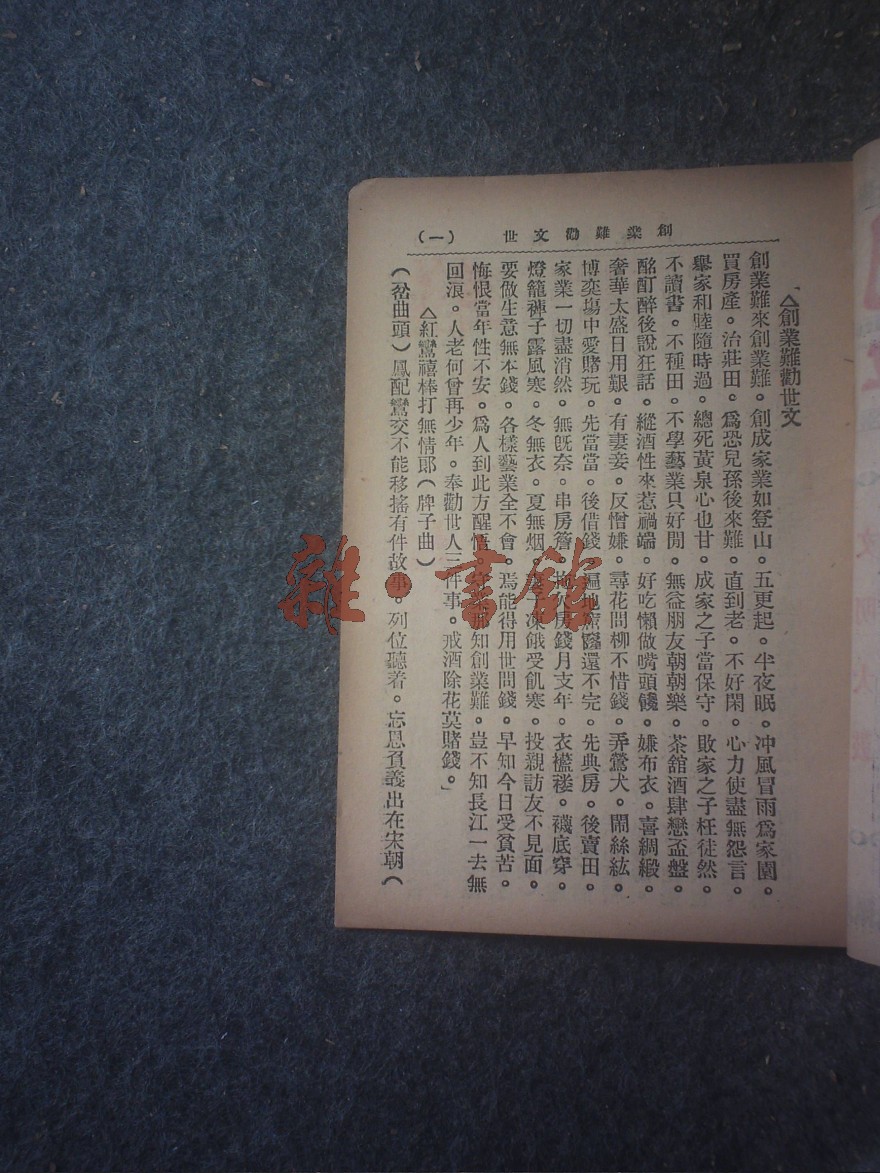 創業難勸文世 (一)
△創業難勸世文
創業難來創業難。創成家業如登山。五更起。半夜眠。冲風冒雨爲家園。
買房產。治莊田。爲恐兒孫後來難。直到老。不好閑。心力使盡無怨言。
舉家和睦隨時過。總死黃泉心也甘。成家之子當保守。敗家之子枉徒然。
不讀書。不種田。不學藝業只好閒。無益朋友朝朝樂。茶舘酒肆戀盃盤。
酩酊醉後說狂話。縱酒性來惹禍端。好吃懶做嘴頭饞。嫌布衣。喜綢緞。
奢華太盛日用艱。有妻妾。反憎嫌。尋花問柳不惜錢。弄鶯犬。鬧絲絃。
博奕塲中愛賭玩。先當當。後借錢。遍地窟窿還不完。先典房。後賣田。
家業一切盡消然。無旣奈。串房簷。房錢月支年。衣襤褸。襪底穿。
燈籠褲子露風寒。冬無衣。夏無烟。凍餓受飢寒。投親訪友不見面。
要做生意無本錢。各樣藝業全不會。焉能得用世間錢。早知今日受貧苦。
悔恨當年性不安。爲人到此方醒悟。知創業難。豈不知長江一去無
回浪。人老何曾再少年。奉勸世人三件事。戒酒除花莫賭錢。」
△紅鸞禧棒打無情郎(牌子曲)
(岔曲頭)鳳配鸞交不能移搖有件故事。列位聽着。忘恩負義出在宋朝(
雜·書館